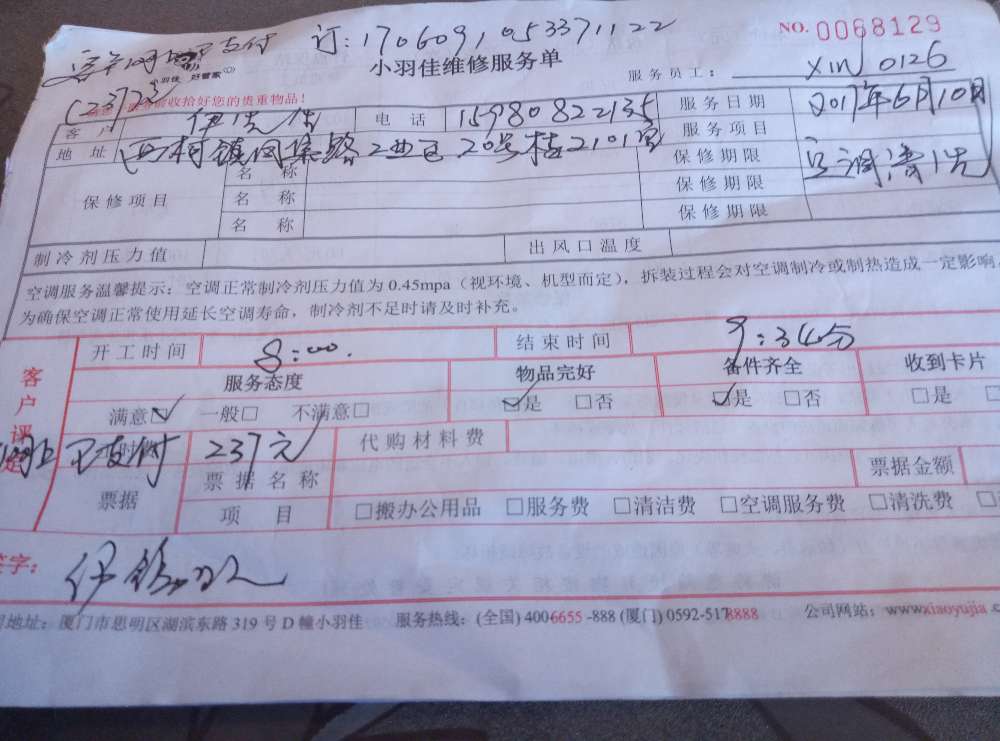 客户网上已支付 订:1706091053371122 NO. 0068129
小羽佳维修服务单
羽佳 好管家
(237元) 收拾好您的贵重物品! 服务员工: XIN 0126
客户 电话 15980822135 服务日期 2017年6月10日
地址 20号楼2101室 服务项目 空调清洗
保修项目 名称 保修期限
名称 保修期限
名称 保修期限
制冷剂压力值 出风口温度
空调服务温馨提示:空调正常制冷剂压力值为 0.45mpa(视环境、机型而定),拆装过程会对空调制冷或制热造成一定影响,
为确保空调正常使用延长空调寿命,制冷剂不足时请及时补充。
客户评定 开工时间 8:00. 结束时间 9:34分
服务态度 物品完好 备件齐全 收到卡片
满意☑ 一般□ 不满意□ ☑是 □否 ☑是 □否 □是 □
网上已支付 237元 代购材料费
票据 票据名称 票据金额
项目 □搬办公用品 □服务费 □清洁费 □空调服务费 □清洗费
签字:
地址:厦门市思明区湖滨东路 319 号 D 幢小羽佳 服务热线:(全国) 4006655 -888 (厦门) 0592-5178888 公司网站:www.xiaoyujia.c